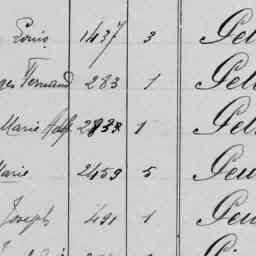 Louis 1437 3 Gel
ges Fernand 283 1 Gel
Marie Adf. 2838 1 Gel
Marie 2459 5 Geu
Joseph 491 1 Geu